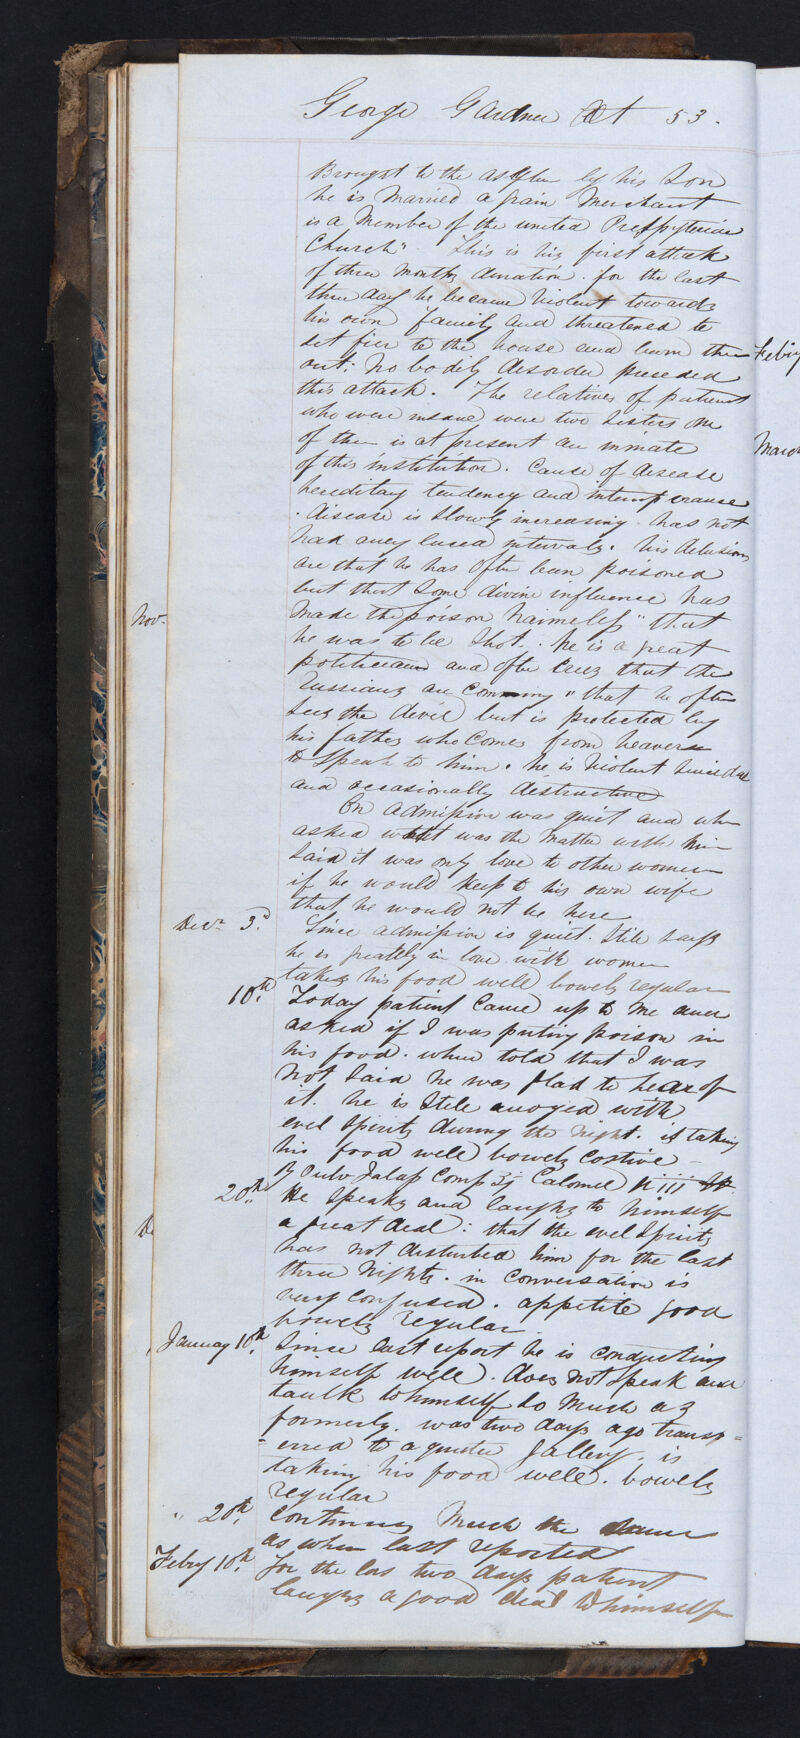 George Gardner Aet 53.
Brought to the asylum by his Son
he is Married a grain Merchant
is a Member of the united Presbyterian
Church". This is his first attack
of three Months duration. for the last
three day he became Violent towards
his own family and threatened to
set fier to the house and burn them
out: No bodily disorder preceded
this attack. The relatives of patient
who were insane were two Sisters one
of them is at present an inmate
of this institution. Cause of disease
hereditary tendency and intemperance
. disease is Slowly increasing. has not
had any lucid intervals. his delusions
are that he has often been poisoned
but that Some divine influence has
Made the poison harmeless" that
he was to be Shot. . he is a great
politician and often Crys that the
Russians are Comming " that he often
Sees the devil but is protected by
his father who Comes from heaven
to Speak to him. he is Violent Suicidal
and occasionally destructive
On admission was quiet and when
asked what was the Matter with him
Said it was only love to other women
if he would keep to his own wife
that he would not be here
Decr 3d. Since admission is quiet. Stile says
he is greately in love with women
takes his food well bowels regular
10th. Today patient Came up to me and
asked if I was puting poison in
his food. when told that I was
Not Said he was glad to hear of
it. he is Stile anoyed with
evel Spirits during the Night. is taking
his food well bowels Costive
℞ Pulv Jalap Comp ʒj Calomel gr iii
20th. He Speaks and laughs to himself
a great deal: that the evel Spirits
has not disturbed him for the last
three Nights. in Conversation is
very Confused. appetite good
bowels regular
January 10th. Since last report he is conducting
himself well. does not Speak and
taulk to himself So Much as
formerly. was two days ago transf=
=erred to a quieter Gallery. is
taking his food well. bowels
regular
" 20th. Continues Much the Same
as when last reported
Febry 10th. for the las two days patient
laughs a good deal to himself
Nov.
De
Febry
March